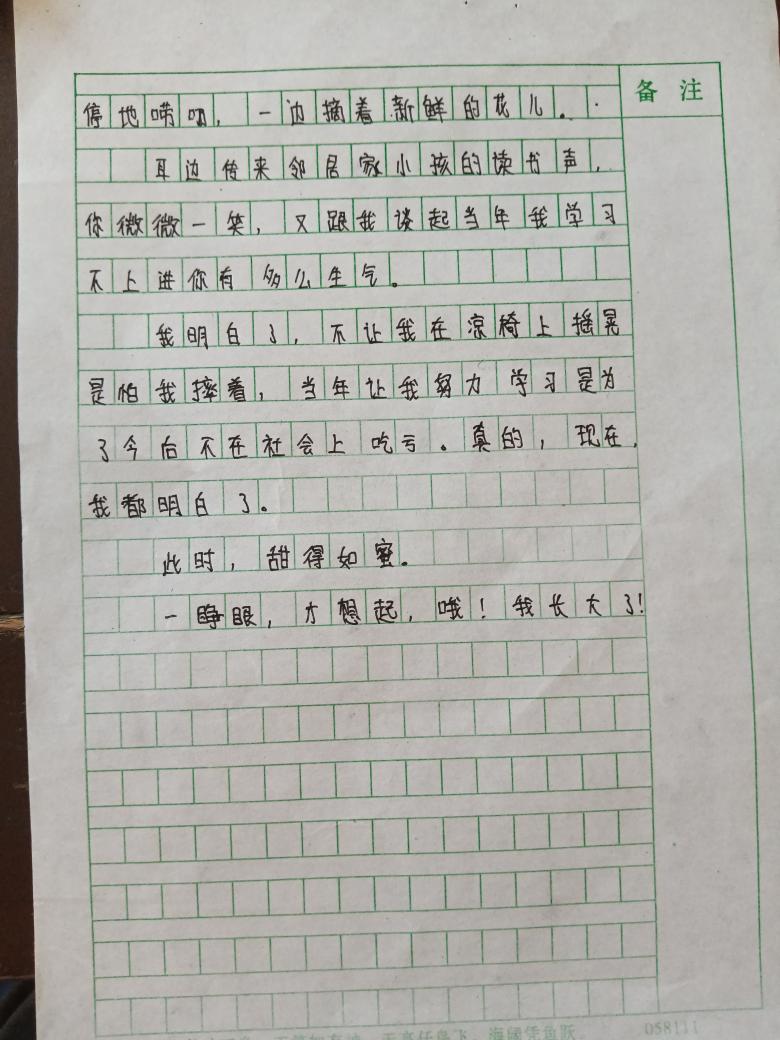 备 注
停地唠叨，一边摘着新鲜的花儿。
耳边传来邻居家小孩的读书声，
你微微一笑，又跟我谈起当年我学习
不上进你有多么生气。
我明白了，不让我在凉椅上摇晃
是怕我摔着，当年让我努力学习是为
了今后不在社会上吃亏。真的，现在，
我都明白了。
此时，甜得如蜜。
一睁眼，才想起，哦！我长大了！
天高任鸟飞 海阔凭鱼跃 058111